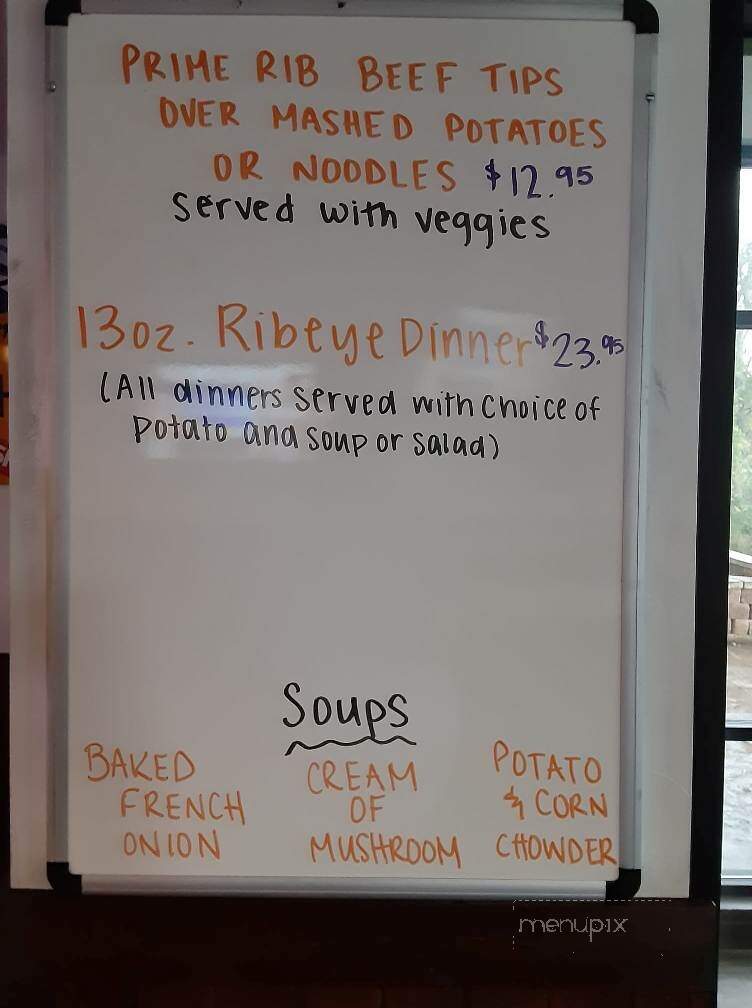 PRIME RIB BEEF TIPS
OVER MASHED POTATOES
OR NOODLES $12.95
Served with veggies
13oz. Ribeye Dinner $23.95
(All dinners served with choice of
potato and soup or salad)
Soups
BAKED
FRENCH
ONION
CREAM
OF
MUSHROOM
POTATO
& CORN
CHOWDER
menupix